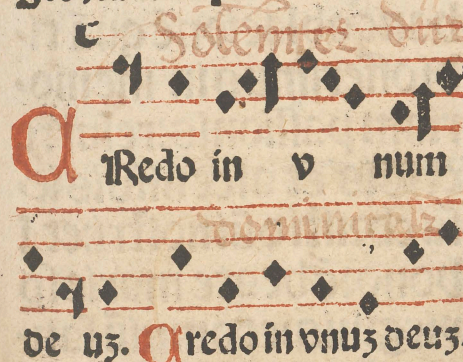 Solemniter
CRedo in v num
dominicale
de uz. Credo in vnuz deuz.